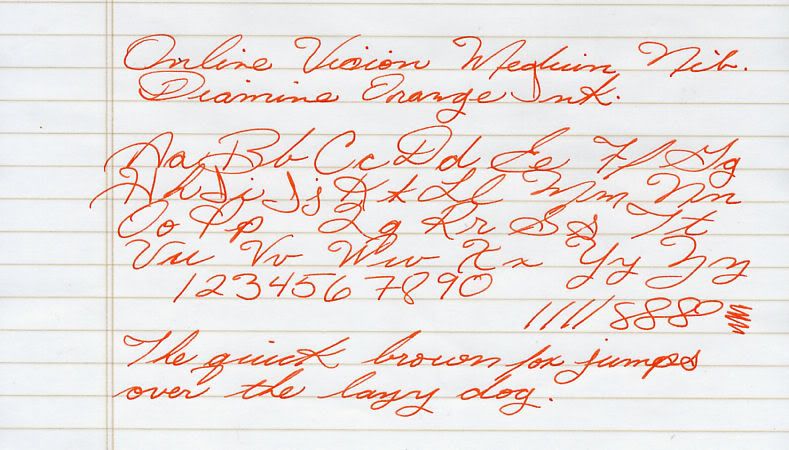 Online Vision Medium Nib.
Diamine Orange Ink.
Aa Bb Cc Dd Ee Ff Gg
Hh Ii Jj Kk Ll Mm Nn
Oo Pp Qq Rr Ss Tt
Uu Vv Ww Xx Yy Zz
1234567890
1111 8880
The quick brown fox jumps
over the lazy dog.